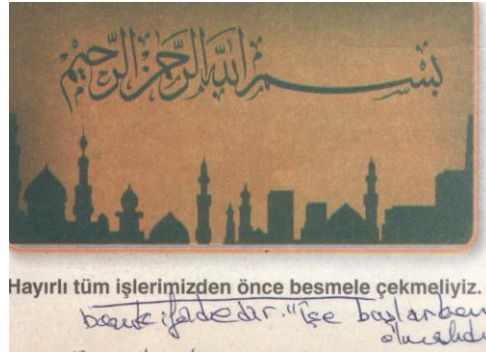 بسم الله الرحمن الرحيم
Hayırlı tüm işlerimizden önce besmele çekmeliyiz.
ifadedir. "İşe başlarken
olmalıdı